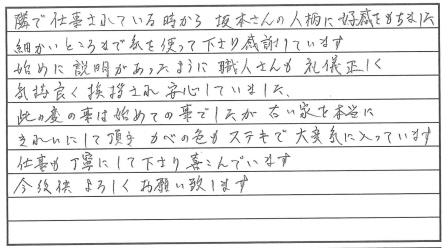 隣で仕事されている時から 坂本さんの人柄に好感をもちました
細かいところまで気を使って下さり感謝しています
始めに説明があったように職人さんも礼儀正しく
気持良く挨拶され安心していました。
此の度の事は始めての事でしたが古い家を本当に
きれいにして頂き カベの色もステキで大変気に入っています
仕事も丁寧にして下さり喜こんでいます
今後供よろしくお願い致します